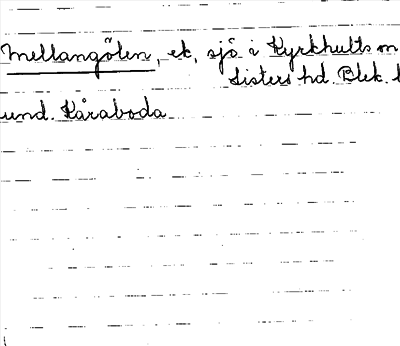 Mellangölen, ek, sjö i Kyrkhults
Listers hd. Blek.
und. Kåraboda